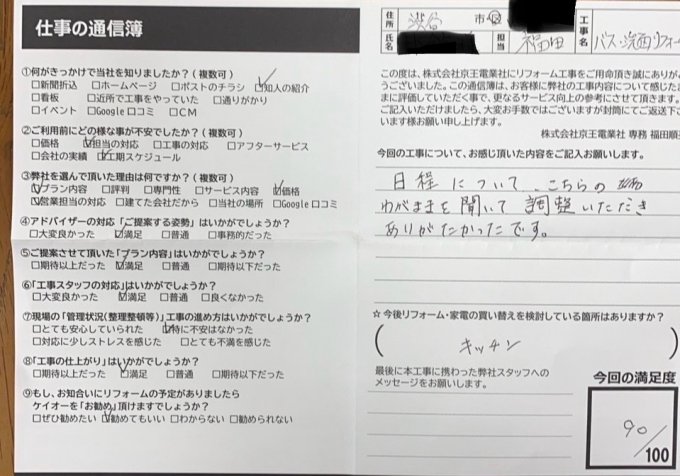 仕事の通信簿
①何がきっかけで当社を知りましたか？(複数可)
□新聞折込 □ホームページ □ポストのチラシ ☑知人の紹介
□看板 □近所で工事をやっていた □通りがかり
□イベント □Google口コミ □CM
②ご利用前にどの様な事が不安でしたか？(複数可)
□価格 ☑担当の対応 □工事の対応 □アフターサービス
□会社の実績 ☑工期スケジュール
③弊社を選んで頂いた理由は何ですか？(複数可)
☑プラン内容 □評判 □専門性 □サービス内容 ☑価格
☑営業担当の対応 □建てた会社だから □当社の場所 □Google口コミ
④アドバイザーの対応「ご提案する姿勢」はいかがでしょうか？
□大変良かった ☑満足 □普通 □事務的だった
⑤ご提案させて頂いた「プラン内容」はいかがでしょうか？
□期待以上だった ☑満足 □普通 □期待以下だった
⑥「工事スタッフの対応」はいかがでしょうか？
□大変良かった ☑満足 □普通 □良くなかった
⑦現場の「管理状況(整理整頓等)」工事の進め方はいかがでしょうか？
□とても安心していられた ☑特に不安はなかった
□対応に少しストレスを感じた □とても不満を感じた
⑧「工事の仕上がり」はいかがでしょうか？
□期待以上だった ☑満足 □普通 □期待以下だった
⑨もし、お知合いにリフォームの予定がありましたら
ケイオーを「お勧め」頂けますでしょうか？
□ぜひ勧めたい ☑勧めてもいい □わからない □勧められない
住所 渋谷 市・区
氏名 担当 福田 工事名 バス・洗面リフォーム
この度は、株式会社京王電業社にリフォーム工事をご用命頂き誠にありが
うございました。この通信簿は、お客様に弊社の工事内容について感じたま
まに評価していただく事で、更なるサービス向上の参考にさせて頂きます。
ご記入いただけましたら、大変お手数ではございますが封筒にてご返送下
います様お願い申し上げます。
株式会社京王電業社 専務 福田順
今回の工事について、お感じ頂いた内容をご記入お願いします。
日程について、こちらの
わがままを聞いて調整いただき
ありがたかったです。
☆今後リフォーム・家電の買い替えを検討している箇所はありますか？
(キッチン)
最後に本工事に携わった弊社スタッフへの
メッセージをお願いします。
今回の満足度
90/100